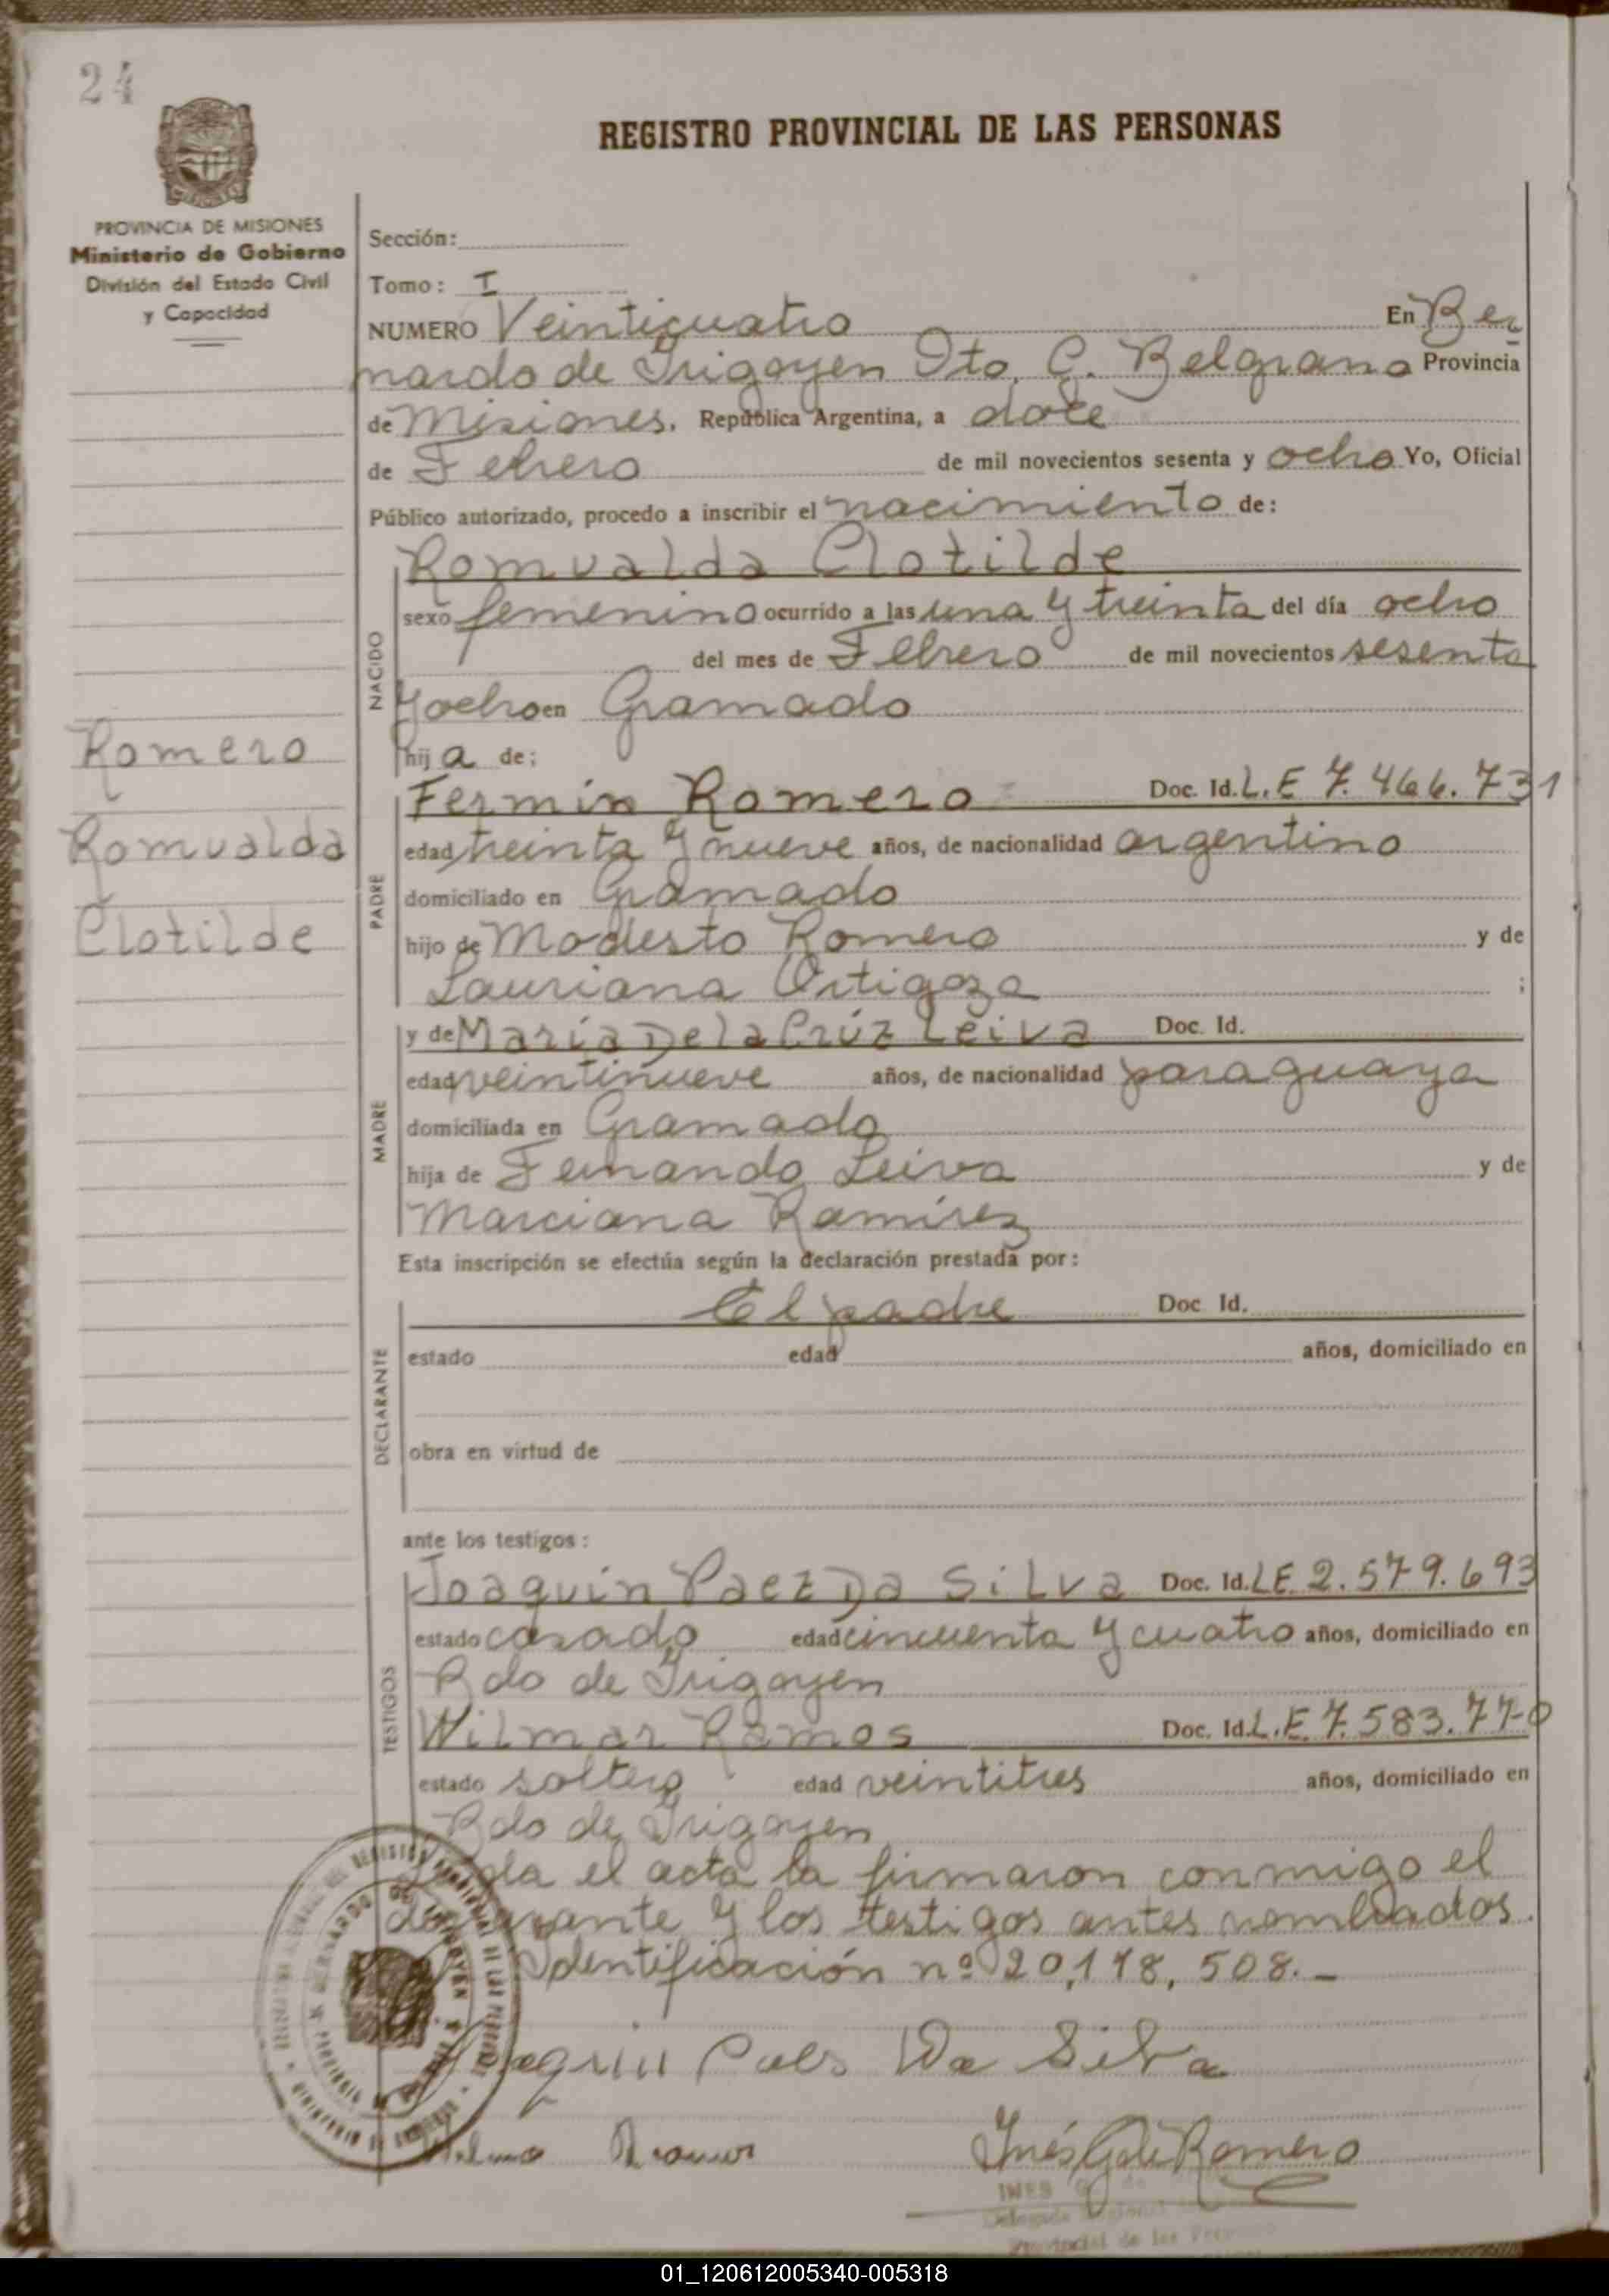 24
REGISTRO PROVINCIAL DE LAS PERSONAS
PROVINCIA DE MISIONES
Ministerio de Gobierno
División del Estado Civil
y Capacidad
Sección:
Tomo: I
NUMERO Veinticuatro En Ber
nardo de Irigoyen Dto. G. Belgrano Provincia
de Misiones. República Argentina, a doce
de Febrero de mil novecientos sesenta y ocho Yo, Oficial
Público autorizado, procedo a inscribir el nacimiento de:
Romualda Clotilde
sexo femenino ocurrido a las una y treinta del día ocho
del mes de Febrero de mil novecientos sesenta
y ocho en Gramado
NACIDO
hija de:
Romero
Romualda
Clotilde
Fermin Romero Doc. Id. L.E 7.466.731
edad treinta y nueve años, de nacionalidad argentino
domiciliado en Gramado
PADRE
hijo de Modesto Romero y de
Lauriana Ortigoza ;
y de María De la Crúz Leiva Doc. Id.
edad veintinueve años, de nacionalidad paraguaya
domiciliada en Gramado
MADRE
hija de Fernando Leiva y de
Marciana Ramírez
Esta inscripción se efectúa según la declaración prestada por:
El padre Doc. Id.
estado edad años, domiciliado en
DECLARANTE
obra en virtud de
ante los testigos:
Joaquín Paez Da Silva Doc. Id. LE. 2.579.693
estado casado edad cincuenta y cuatro años, domiciliado en
Bdo de Irigoyen
TESTIGOS
Wilmar Ramos Doc. Id. L.E. 7.583.770
estado soltero edad veintitres años, domiciliado en
Bdo de Irigoyen
Leida el acta la firmaron conmigo el
declarante y los testigos antes nombrados.
Identificación nº 20,118,508.-
Joaquin Paes Da Silva
Ramos
Inés G. de Romero
INES G. de
Delegada Regional
Provincial de las
01_120612005340-005318